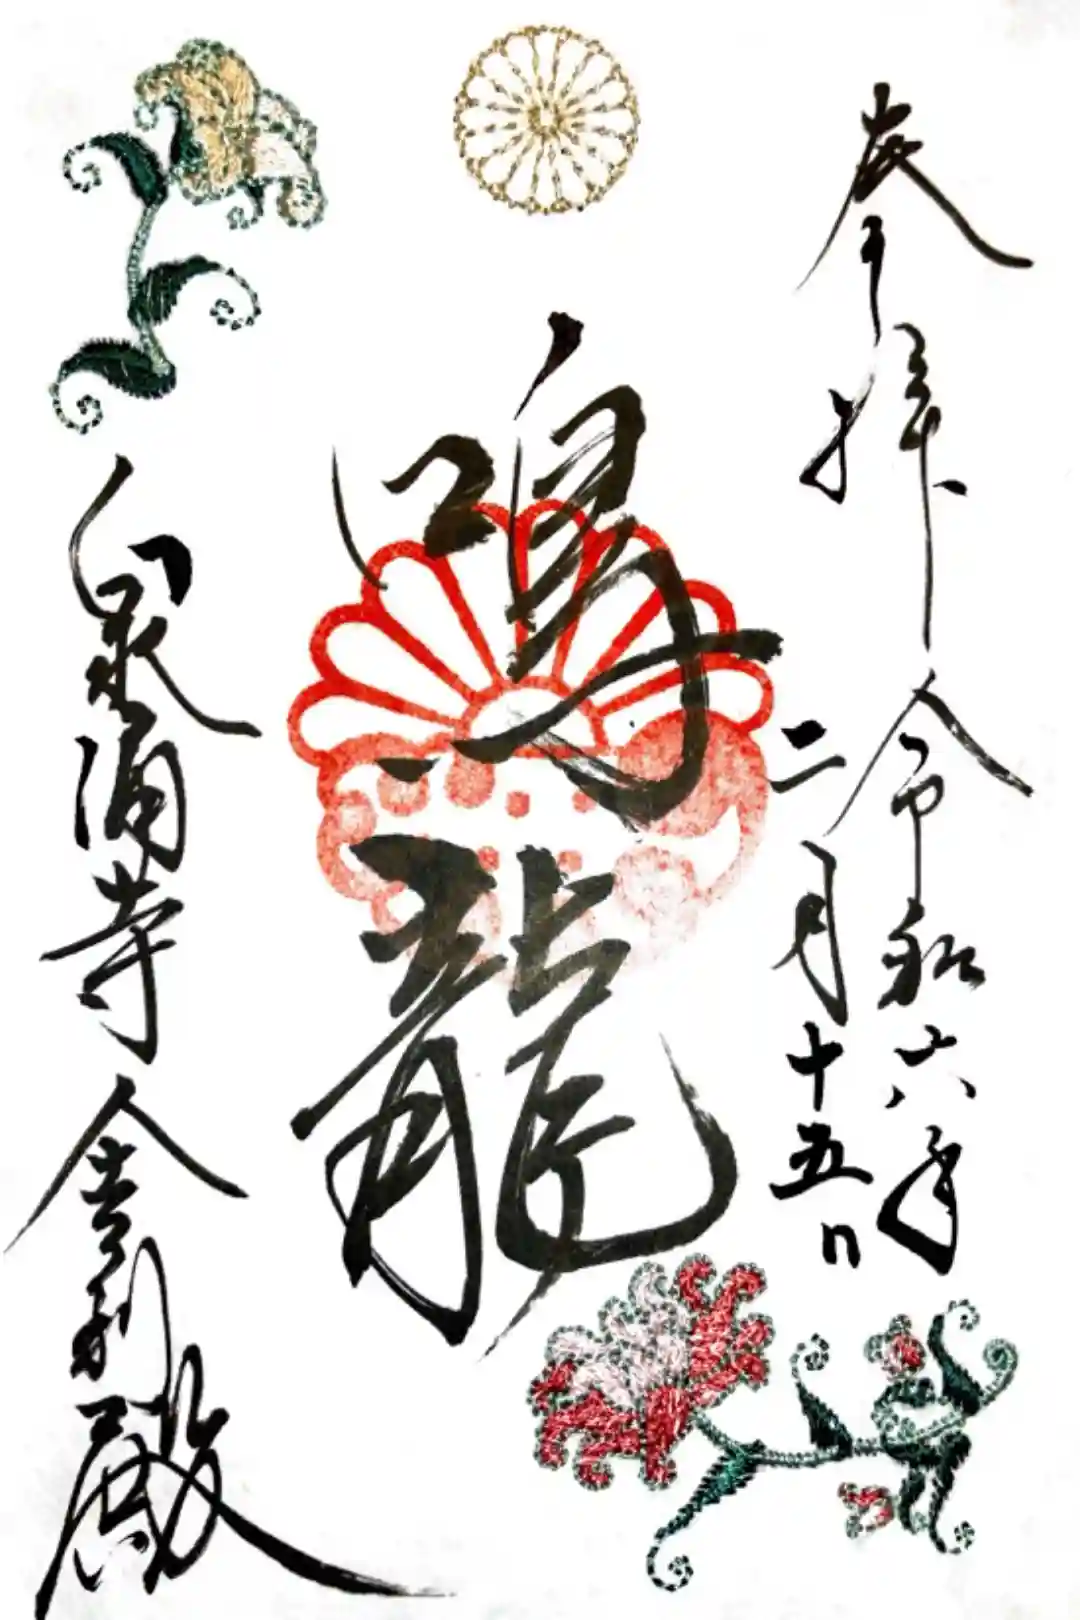 奉拝
令和六年
二月十五日
鳴龍
泉涌寺
舎利殿